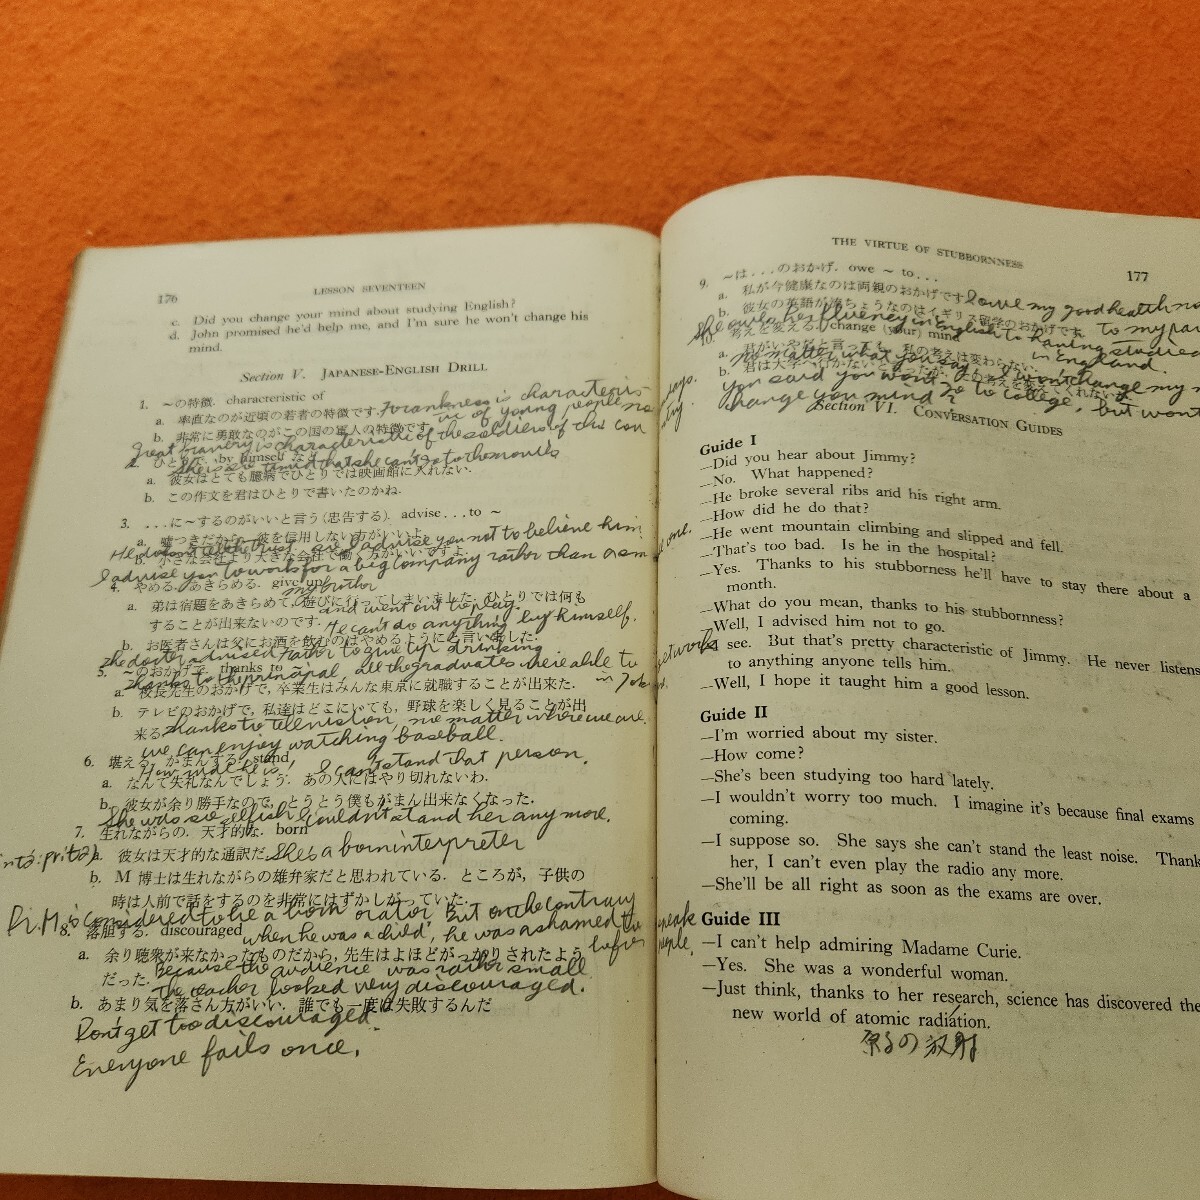 176
LESSON SEVENTEEN
c. Did you change your mind about studying English?
d. John promised he'd help me, and I'm sure he won't change his
mind.
Section V. JAPANESE-ENGLISH DRILL
1. 〜の特徴. characteristic of
a. 率直なのが近頃の若者の特徴です. Frankness is characteris
tic of young people no
b. 非常に勇敢なのがこの国の軍人の特徴です.
Great bravery is characteristic of the soldiers of this coun
2. ひとりで. by himself
She is so timid that she can't go to the movies
a. 彼女はとても臆病でひとりでは映画館に入れない.
b. この作文を君はひとりで書いたのかね.
3. ...に〜するのがいいと言う(忠告する). advise...to 〜
a. 嘘つきだから, 彼を信用しない方がいいよ.
I advise you not to believe him
b. 小さな会社より大きな会社で働く方がいいですよ.
I advise you to work for a big company rather than a sm
4. やめる. あきらめる. give up
my brother
a. 弟は宿題をあきらめて, 遊びに行ってしまいました. ひとりでは何も
and went out to play.
することが出来ないのです. He can't do anything by himself.
b. お医者さんは父にお酒を飲むのはやめるようにと言いました.
The doctor advised father to give up drinking
5. 〜のおかげで. thanks to 〜
Thanks to the principal all the graduates were able to
a. 校長先生のおかげで, 卒業生はみんな東京に就職することが出来た.
b. テレビのおかげで, 私達はどこにいても, 野球を楽しく見ることが出
来る. Thanks to television, no matter where we are,
we can enjoy watching baseball.
6. 堪える. がまんする. stand
I can't stand that person.
a. なんて失礼なんでしょう. あの人にはやり切れないわ.
b. 彼女が余り勝手なので, とうとう僕もがまん出来なくなった.
She was so selfish I couldn't stand her any more.
7. 生れながらの. 天才的な. born
a. 彼女は天才的な通訳だ. She's a born interpreter
b. M 博士は生れながらの雄弁家だと思われている. ところが, 子供の
時は人前で話をするのを非常にはずかしがっていた.
Dr. M is considered to be a born orator. But on the contrary
8. 落胆する. discouraged
when he was a child, he was ashamed to speak
before people.
a. 余り聴衆が来なかったものだから, 先生はよほどがっかりされたよう
だった. Because the audience was rather small
the teacher looked very discouraged.
b. あまり気を落さん方がいい. 誰でも一度は失敗するんだ
Don't get too discouraged.
Everyone fails once.
THE VIRTUE OF STUBBORNNESS
177
9. 〜は...のおかげ. owe 〜 to...
a. 私が今健康なのは両親のおかげです. I owe my good health no
to my par
b. 彼女の英語が流ちょうなのはイギリス留学のおかげです.
She owes her fluency in English to having studied
in England.
10. 考えを変える. change (your) mind
a. 君がいやだと言っても, 私の考えは変わらない.
No matter what you say, I won't change my m
b. 君は大学へ行かないと
You said you won't go to college, but won't
change your mind?
Section VI. CONVERSATION GUIDES
Guide I
—Did you hear about Jimmy?
—No. What happened?
—He broke several ribs and his right arm.
—How did he do that?
—He went mountain climbing and slipped and fell.
—That's too bad. Is he in the hospital?
—Yes. Thanks to his stubbornness he'll have to stay there about a
month.
—What do you mean, thanks to his stubbornness?
—Well, I advised him not to go.
—I see. But that's pretty characteristic of Jimmy. He never listens
to anything anyone tells him.
—Well, I hope it taught him a good lesson.
Guide II
—I'm worried about my sister.
—How come?
—She's been studying too hard lately.
—I wouldn't worry too much. I imagine it's because final exams
coming.
—I suppose so. She says she can't stand the least noise. Thank
her, I can't even play the radio any more.
—She'll be all right as soon as the exams are over.
Guide III
—I can't help admiring Madame Curie.
—Yes. She was a wonderful woman.
—Just think, thanks to her research, science has discovered the
new world of atomic radiation.
原子の放射